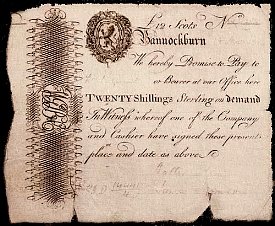 L12 Scots N
Bannockburn
We hereby Promise to Pay to
or Bearer at our Office here
TWENTY Shillings Sterling on demand
In Witness whereof one of the Company
and Cashier have signed these present
place and date as above